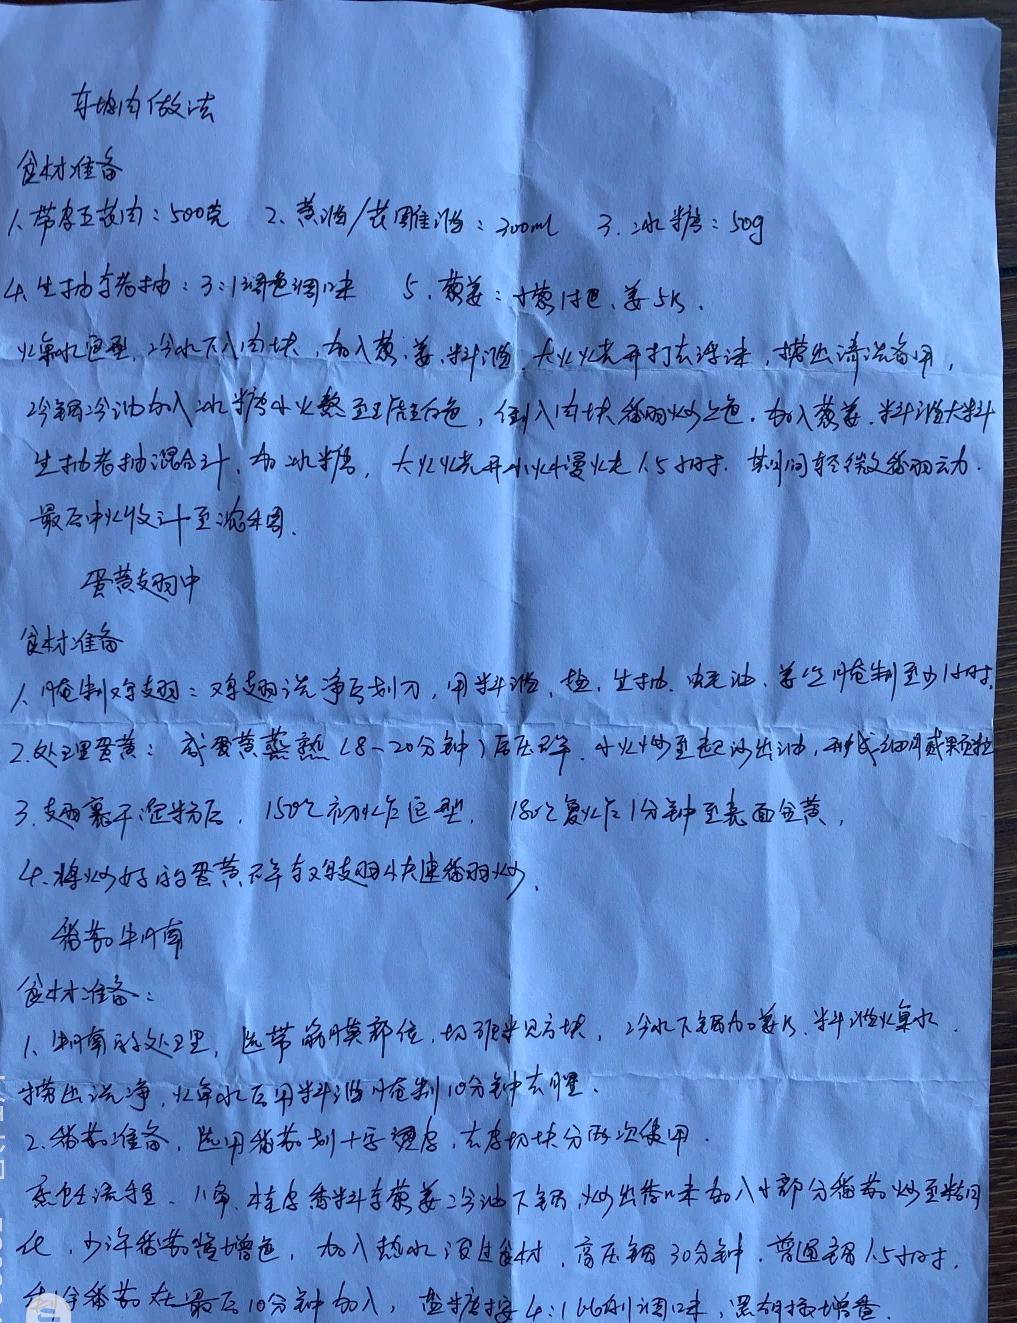 东坡肉做法
食材准备
1、带皮五花肉：500克 2、黄酒/花雕酒：300ml 3.冰糖：50g
4.生抽与老抽：3:1调色调味 5、葱姜：小葱1把、姜5片.
焯水定型，冷水下入肉块，加入葱、姜、料酒，大火烧开打去浮沫，捞出清洗备用，
冷锅冷油加入冰糖小火熬至琥珀色，倒入肉块翻炒上色.加入葱姜.料酒大料
生抽老抽混合汁、加冰糖，大火烧开小火慢炖1.5小时.其间轻微翻动.
最后中火收汁至浓稠.
蛋黄鸡翅中
食材准备
1、腌制鸡翅：鸡翅洗净后划刀，用料酒、盐、生抽、蚝油、姜丝腌制至少1小时.
2.处理蛋黄：咸蛋黄蒸熟(8-20分钟)后压碎.小火炒至起沙出油，形成细腻颗粒
3.翅裹干淀粉后，150℃初炸定型，180℃复炸1分钟至表面金黄，
4.将炒好的蛋黄碎与鸡翅快速翻炒、
番茄牛腩
食材准备：
1、牛腩的处理，选带筋膜部位，切块，冷水下锅加姜片、料酒焯水.
捞出洗净，焯水后用料酒腌制10分钟去腥.
2.番茄准备，选用番茄划十字烫皮，去皮切块分两次使用.
烹饪流程、八角、桂皮香料与葱姜冷油下锅，炒出香味加入小部分番茄炒至糊
化，少许番茄酱增色，加入热水没过食材，高压锅30分钟.普通锅1.5小时，
剩余番茄在最后10分钟加入，盐糖按4:1比例调味，黑胡椒增香.